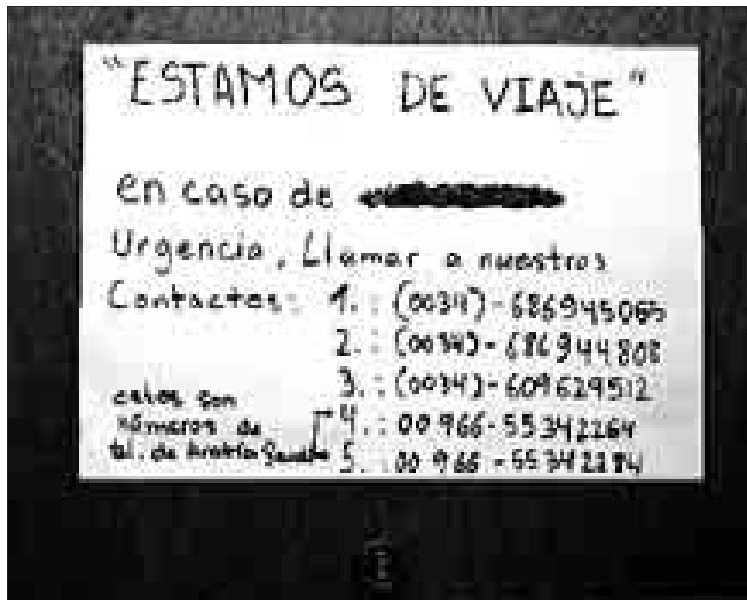 "ESTAMOS DE VIAJE"
en caso de
Urgencia, Llamar a nuestros
Contactos: 1.: (0034)-686945065
2.: (0034)-686944808
3.: (0034)-609629512
estos son
números de 4.: 00 966-55342264
tel. de Arabia 5.: 00 966-55342284